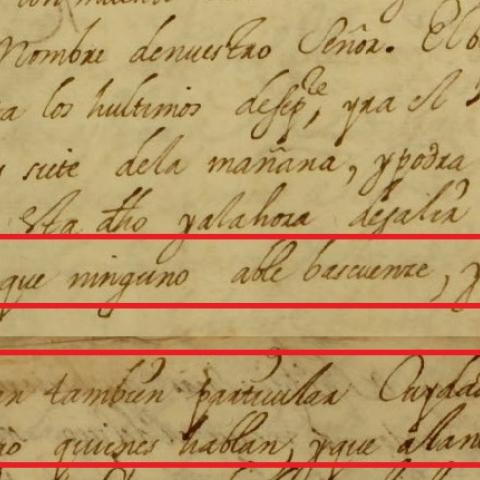 Nombre denuestro Señor. El
a los hultimos desep.re, yra el
siete dela mañana, ypodra
esta dho yalahora desalir
que ninguno able bascuenze, y
en tambien particular Cuyda
quienes hablan, yque allan